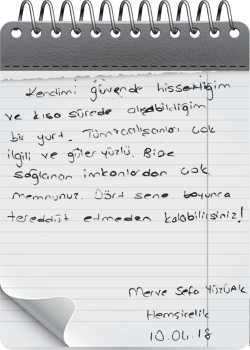 Kendimi güvende hissettiğim
ve kısa sürede alışabildiğim
bir yurt. Tüm çalışanları çok
ilgili ve güler yüzlü. Bize
sağlanan imkanlardan çok
memnunuz. Dört sene boyunca
tereddüt etmeden kalabilirsiniz!
Merve Sefa YÜZÜAK
Hemşirelik
10.04.18